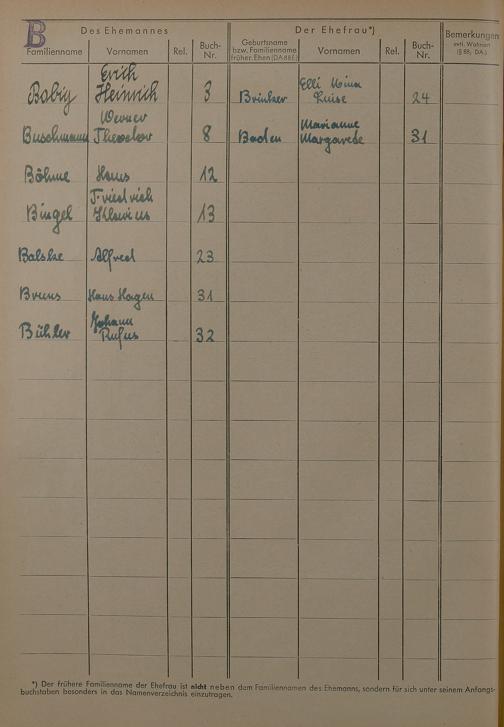 B
Des Ehemannes Der Ehefrau*) Bemerkungen
Familienname Vornamen Rel. Buch-Nr. Geburtsname bzw. Familienname früher. Ehen (DA 88 E) Vornamen Rel. Buch-Nr. evtl. Wohnort (§ 88, DA.)
Erich
Heinrich 3 Elli Mina
Luise 24
Werner
Buschmann Theodor 8 Baden Marianne
Margarete 31
Böhme Hans 12
Bingel Friedrich 13
Alfred 23
Bruns Hans Hagen 31
Bühler Johann
Rufus 32
*) Der frühere Familienname der Ehefrau ist nicht neben dem Familiennamen des Ehemanns, sondern für sich unter seinem Anfangs-
buchstaben besonders in das Namenverzeichnis einzutragen.